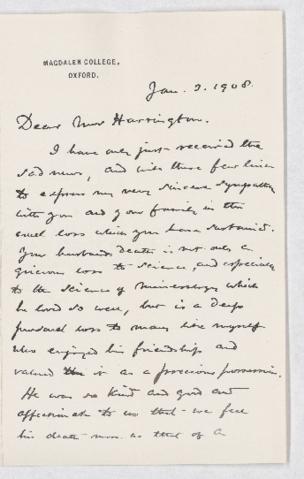 MAGDALEN COLLEGE,
OXFORD.
Jan. 3. 1908.
Dear Mrs Harrington.
I have only just received the
sad news, and write these few lines
to express my very sincere sympathy
with you and your family in the
cruel loss which you have sustained.
Your husband's death is not only a
grievous loss to science, and especially
to the science of mineralogy which
he loved so well, but is a deep
personal loss to many like myself
who enjoyed his friendship and
valued it as a precious possession.
He was so kind and good and
affectionate to us that we feel
his death more as that of a